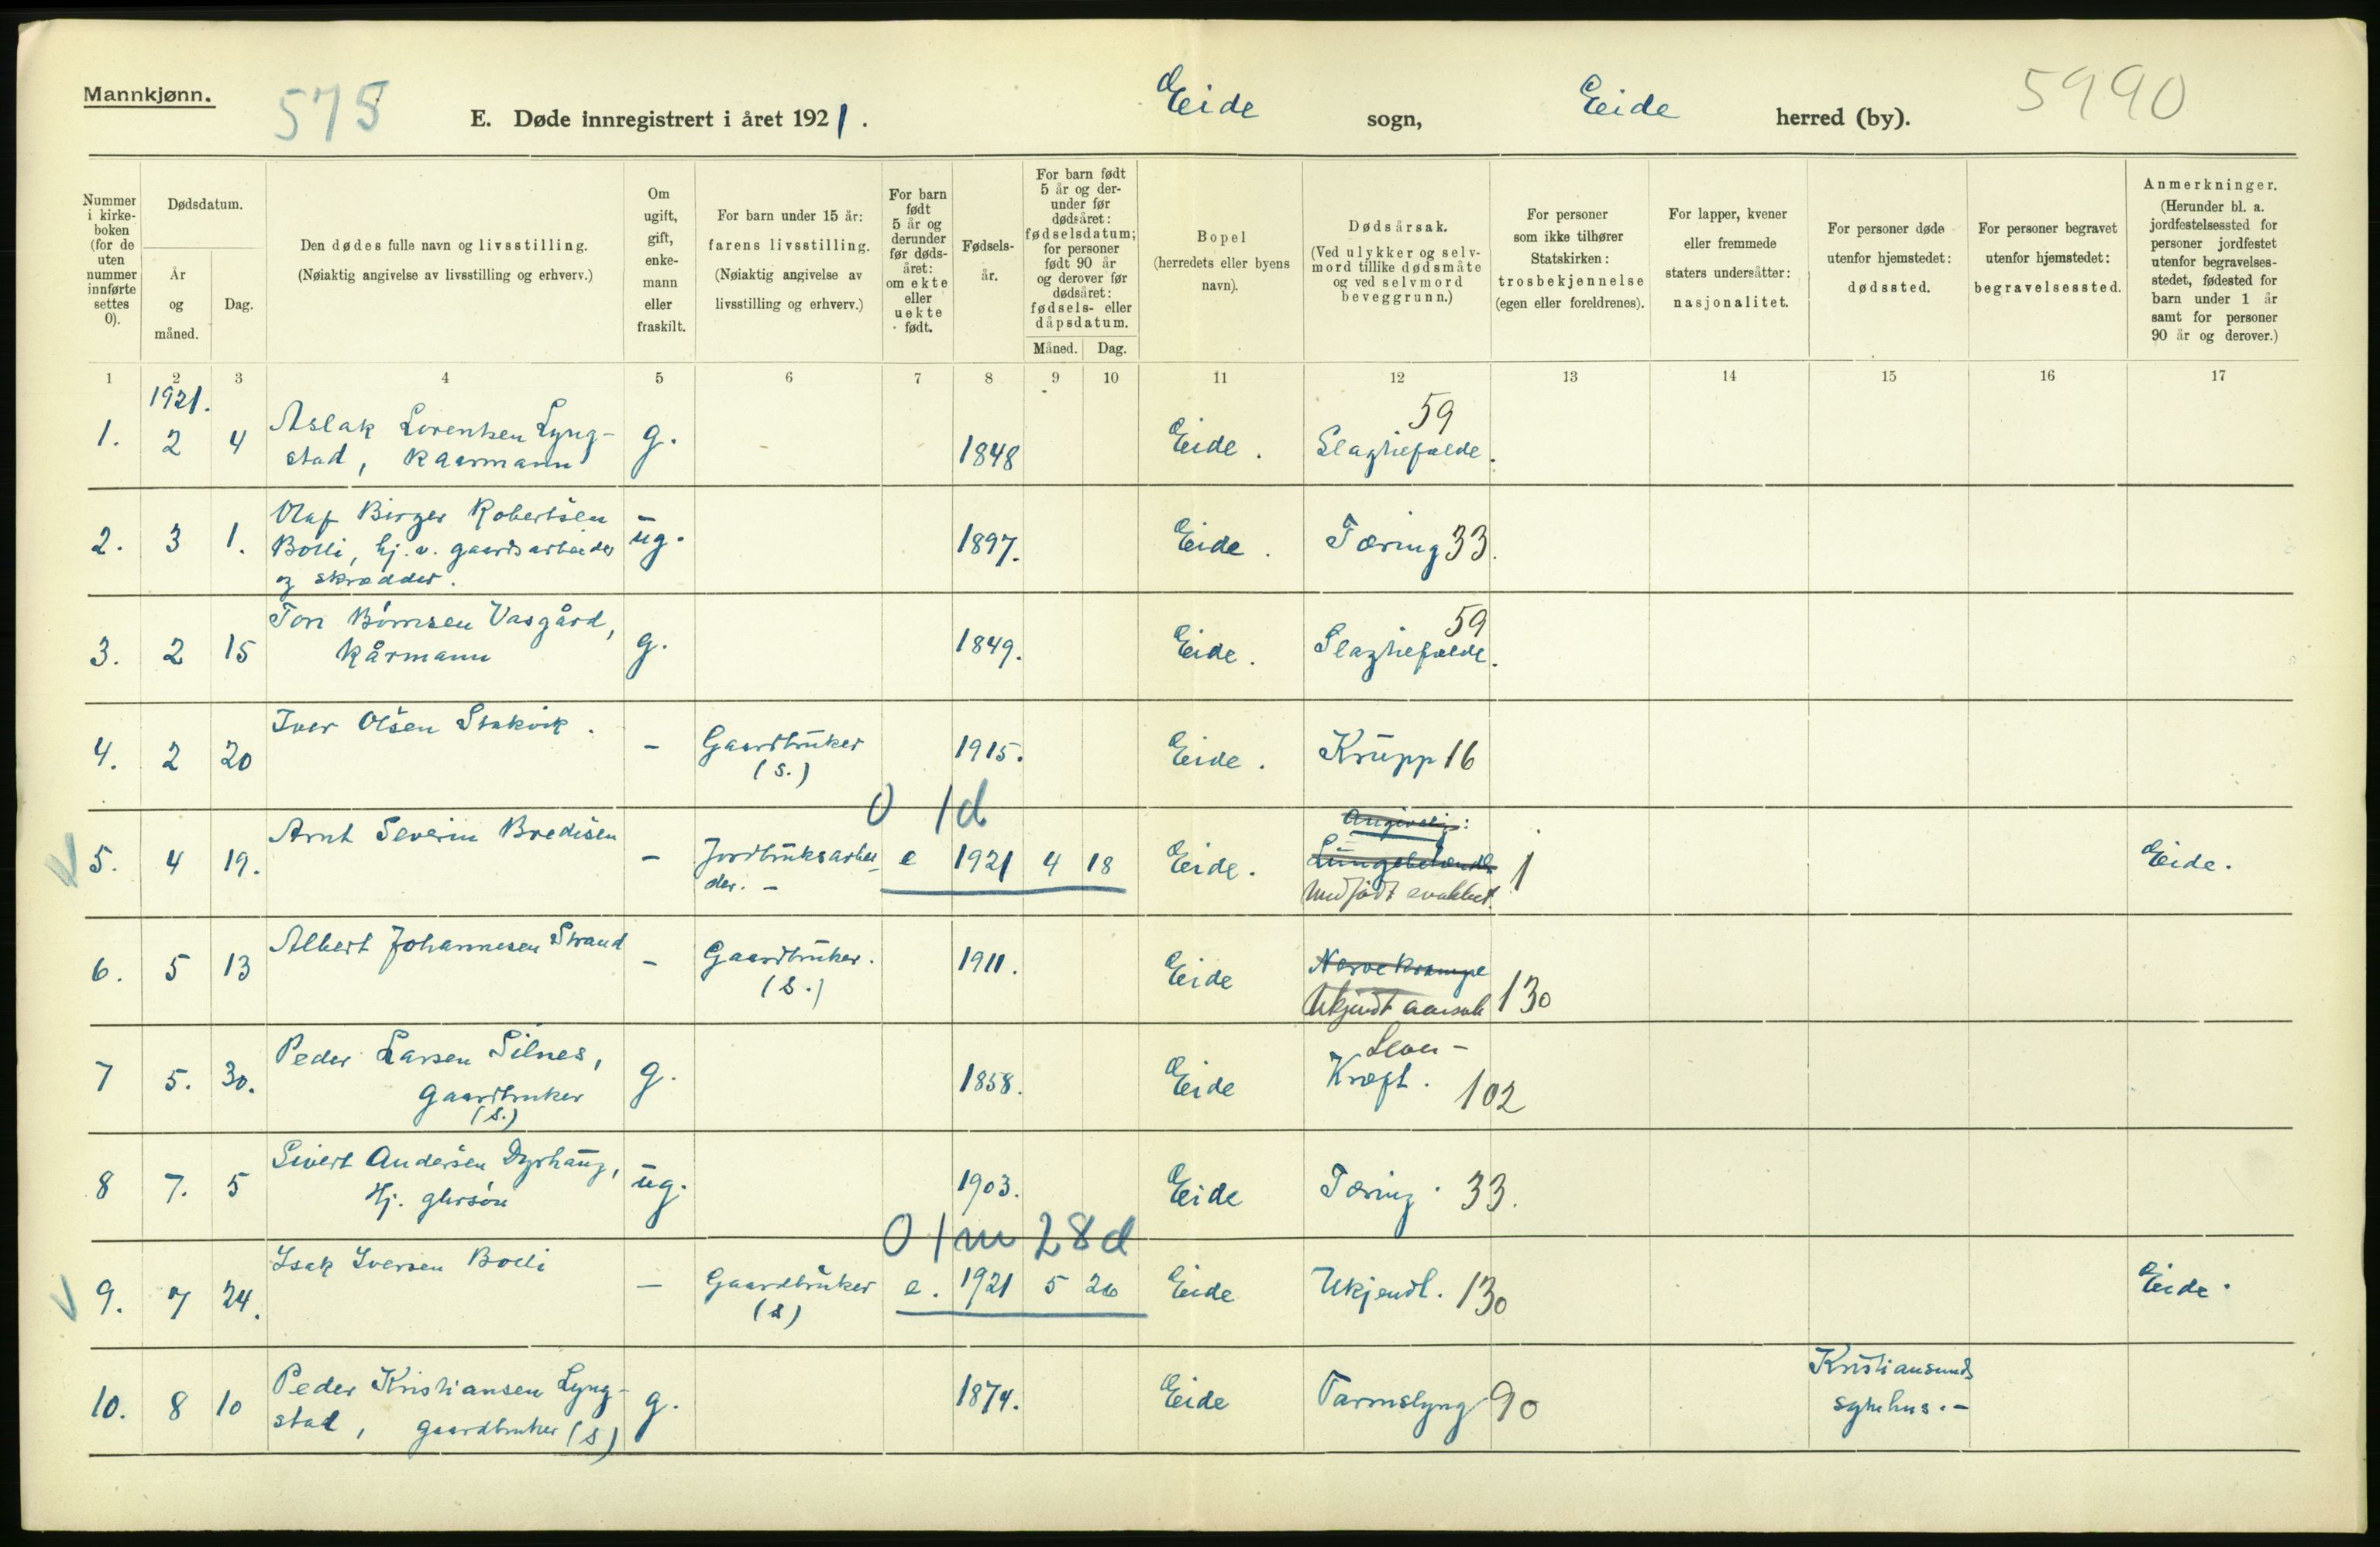 Mannkjønn.
575
E. Døde innregistrert i året 1921.
Eide sogn,
Eide herred (by).
5990
Nummer i kirke-boken (for de uten nummer innførte settes 0).
Dødsdatum.
År og måned.
Dag.
Den dødes fulle navn og livsstilling.
(Nøiaktig angivelse av livsstilling og erhverv.)
Om ugift, gift, enke-mann eller fraskilt.
For barn under 15 år:
farens livsstilling.
(Nøiaktig angivelse av livsstilling og erhverv.)
For barn født 5 år og derunder før døds-året: om ekte eller uekte født.
Fødsels-år.
For barn født 5 år og der-under før dødsåret: fødselsdatum; for personer født 90 år og derover før dødsåret: fødsels- eller dåpsdatum.
Måned. Dag.
Bopel (herredets eller byens navn).
Dødsårsak.
(Ved ulykker og selv-mord tillike dødsmåte og ved selvmord beveggrunn.)
For personer som ikke tilhører Statskirken: trosbekjennelse (egen eller foreldrenes).
For lapper, kvener eller fremmede staters undersåtter: nasjonalitet.
For personer døde utenfor hjemstedet: dødssted.
For personer begravet utenfor hjemstedet: begravelsessted.
Anmerkninger.
(Herunder bl. a. jordfestelsessted for personer jordfestet utenfor begravelses-stedet, fødested for barn under 1 år samt for personer 90 år og derover.)
1 2 3 4 5 6 7 8 9 10 11 12 13 14 15 16 17
1921.
1. 2 4 Aslak Lorentsen Lyng-
stad, Kaarmann g. 1848 Eide. Slagtilfælde. 59
2. 3 1. Olaf Birger Robertsen
Bolli, hj. v. gaardsarbeider
og skrædder. ug. 1897. Eide. Tæring 33.
3. 2 15 Vasgård,
Kårmann g. 1849. Eide. Slagtilfælde. 59
4. 2 20 Iver Olsen Stakvik. - Gaardbruker
(s.) 1915. Eide. Krupp 16
0 1d
5. 4 19. Arnt Severin Bredisen - Jordbruksarbei-
der. - e 1921 4 18 Eide. Angivelig:
Medfødt svakhet. 1 Eide.
6. 5 13 Albert Johannesen Strand - Gaardbruker.
(s.) 1911. Eide Nervekrampe
Ukjendt aarsak 130
7 5. 30. Peder Larsen Silnes,
Gaardbruker
(s.) g. 1858. Eide Lever-
Kræft. 102
8 7. 5 Sivert Andersen Dyrhaug,
Hj. gbrsøn ug. 1903. Eide Tæring. 33.
0 1m 28d
9. 7 24. Isak Iversen Bolli - Gaardbruker
(s) e. 1921 5 26 Eide Ukjendt. 130 Eide.
10. 8 10 Peder Kristiansen Lyng-
stad, gaardbruker (s) g. 1874. Eide Tarmslyng 90 Kristiansunds
sykehus.-